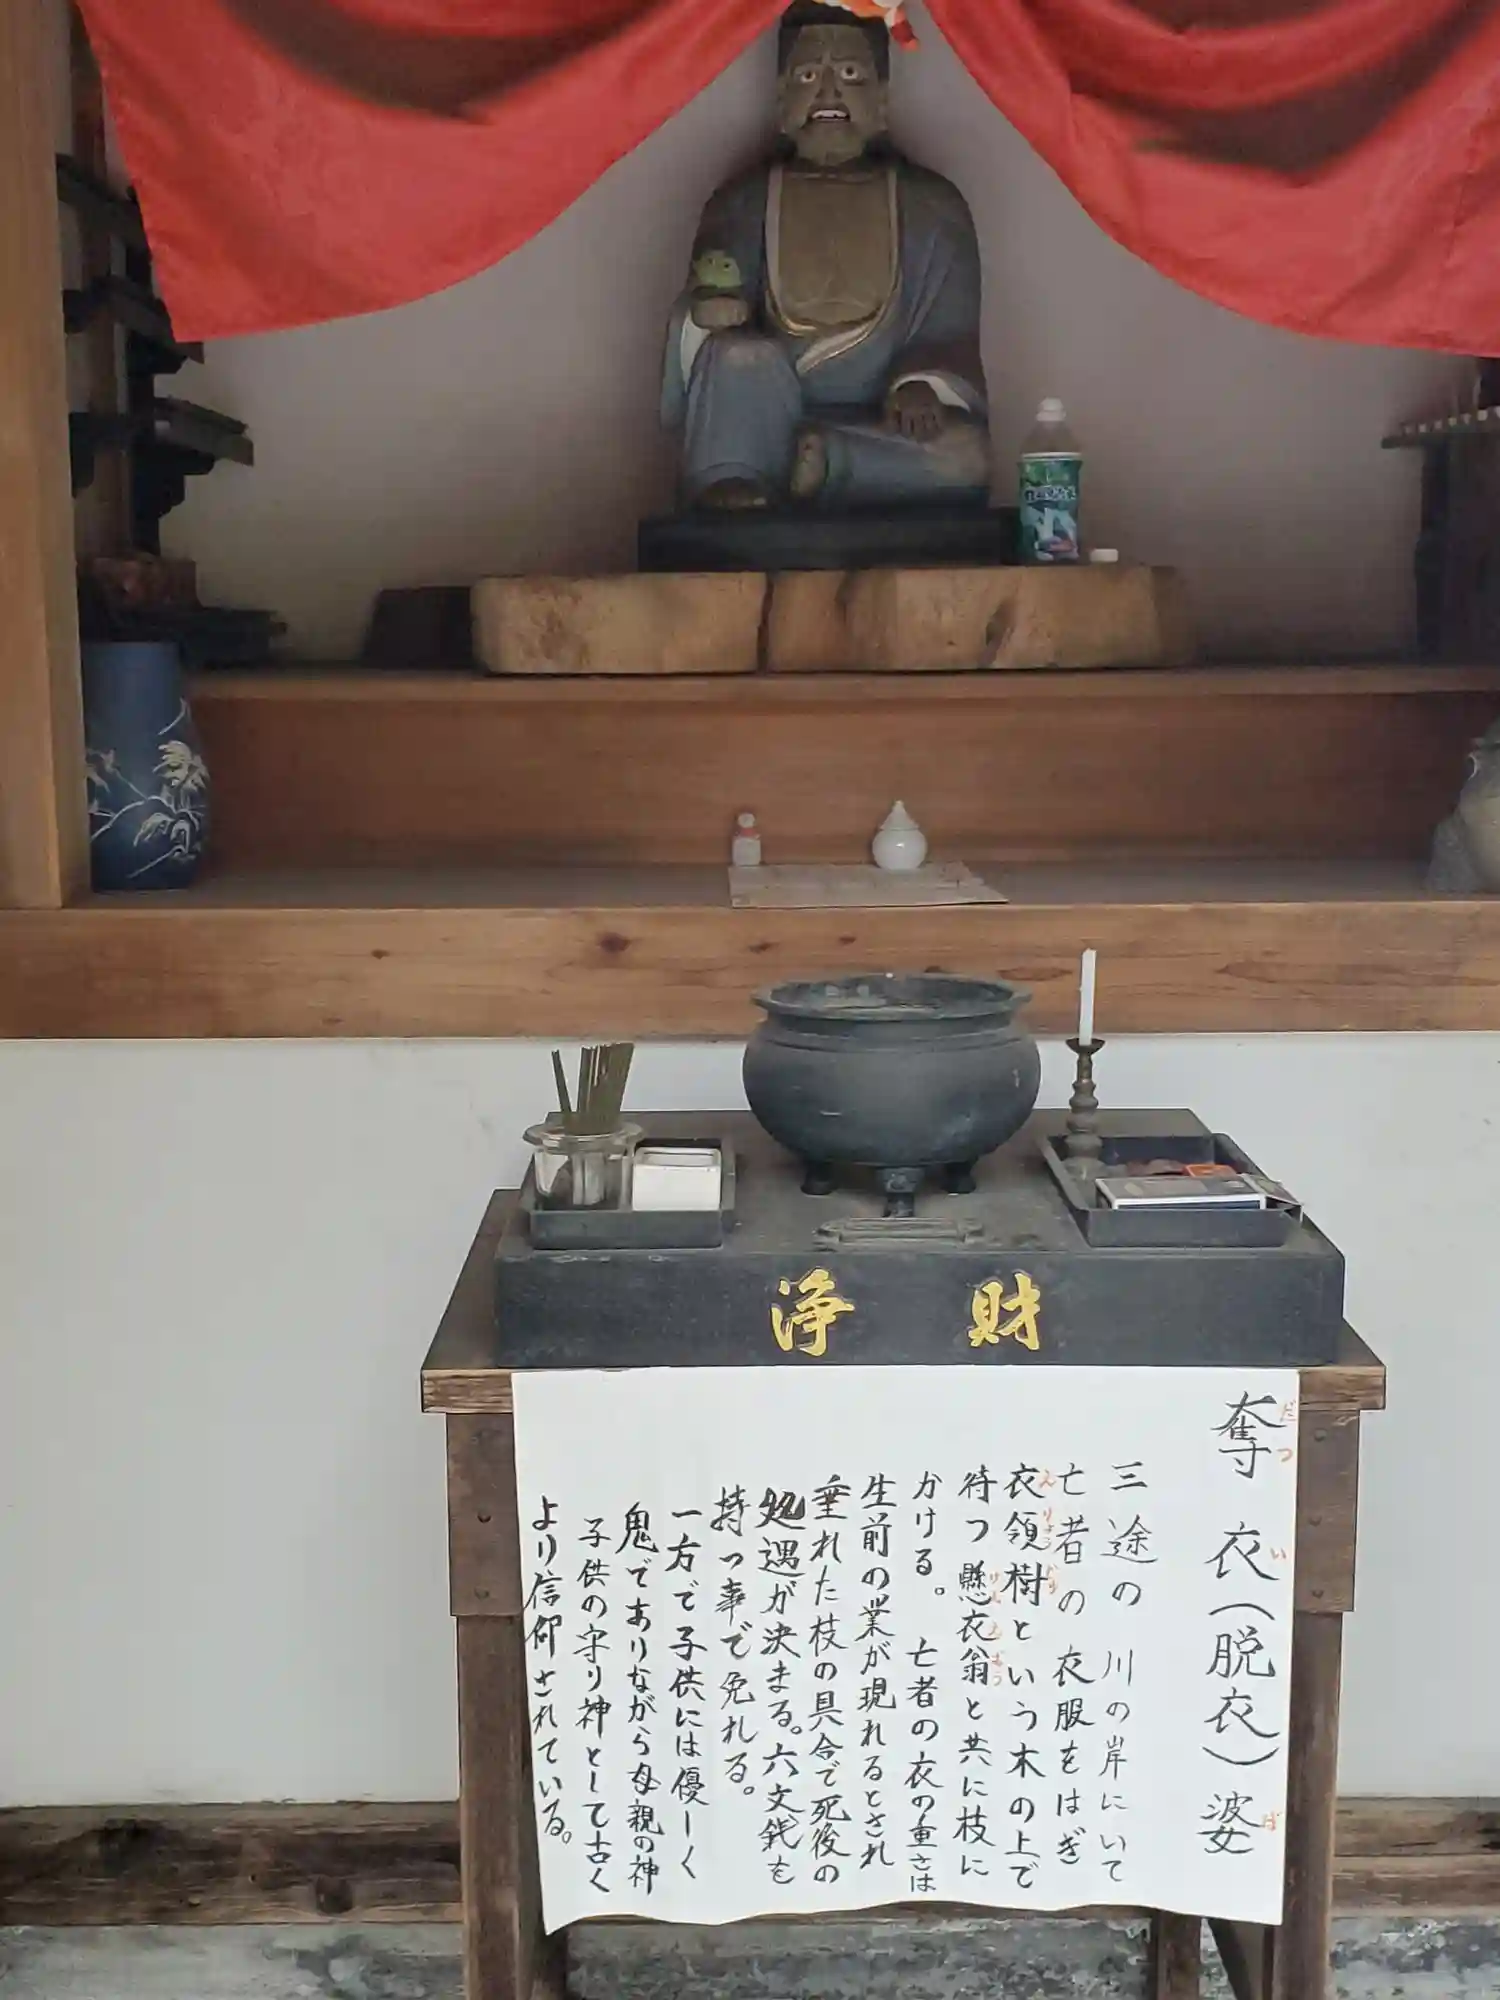 浄財
奪衣(脱衣)婆
だつ い ば
三途の川の岸にいて
亡者の衣服をはぎ
衣領樹という木の上で
えりょうじゅ
待つ懸衣翁と共に枝に
けんえおう
かける。亡者の衣の重さは
生前の業が現れるとされ
垂れた枝の具合で死後の
処遇が決まる。六文銭を
持つ事で免れる。
一方で子供には優しく
鬼でありながら母親の神
子供の守り神として古く
より信仰されている。